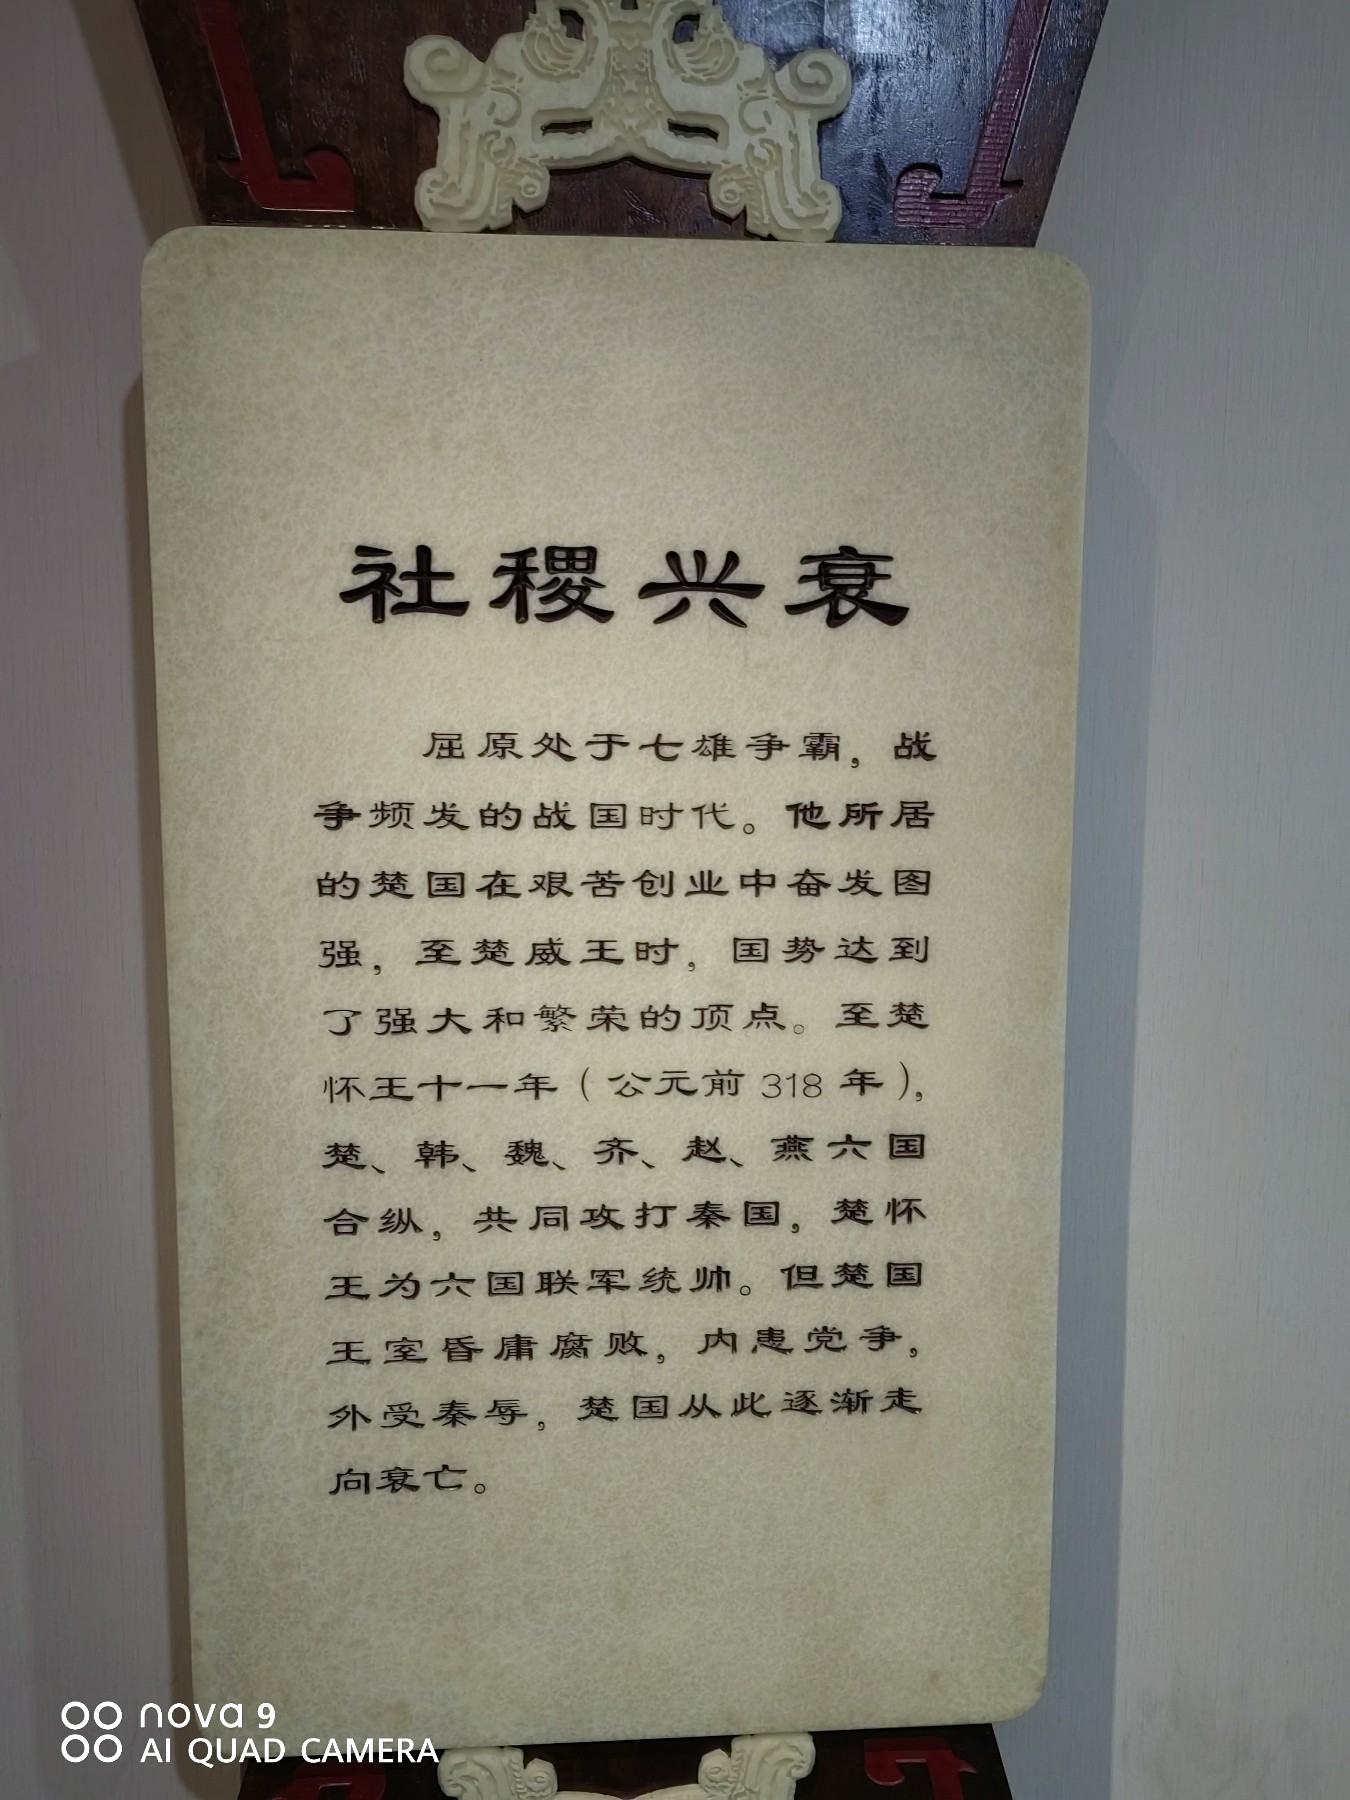 社稷兴衰
屈原处于七雄争霸，战
争频发的战国时代。他所居
的楚国在艰苦创业中奋发图
强，至楚威王时，国势达到
了强大和繁荣的顶点。至楚
怀王十一年（公元前318年），
楚、韩、魏、齐、赵、燕六国
合纵，共同攻打秦国，楚怀
王为六国联军统帅。但楚国
王室昏庸腐败，内患党争，
外受秦辱，楚国从此逐渐走
向衰亡。
nova 9
AI QUAD CAMERA